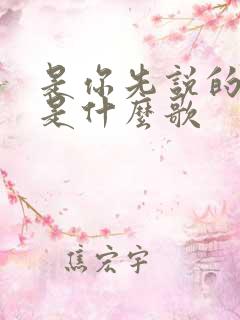 是你先説的
是什麼歌
焦宏宇